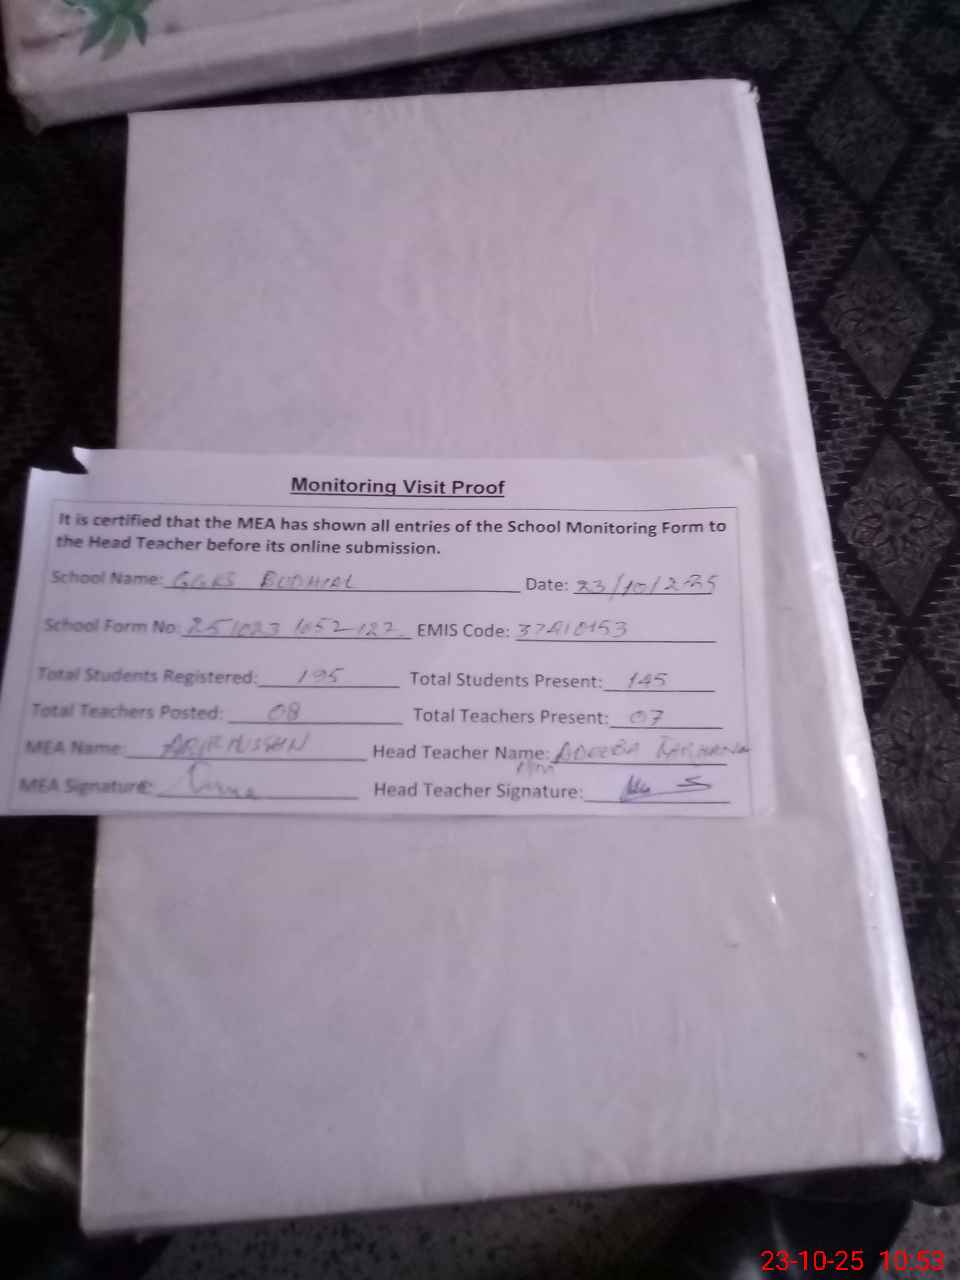 Monitoring Visit Proof
It is certified that the MEA has shown all entries of the School Monitoring Form to
the Head Teacher before its online submission.
School Name: BUDHIAL Date: 23/10/2025
School Form No: 251023 1052-122 EMIS Code:
Total Students Registered: 195 Total Students Present: 145
Total Teachers Posted: 08 Total Teachers Present: 07
MEA Name: Head Teacher Name: ADEEBA
MEA Signature: Head Teacher Signature:
23-10-25 10:53